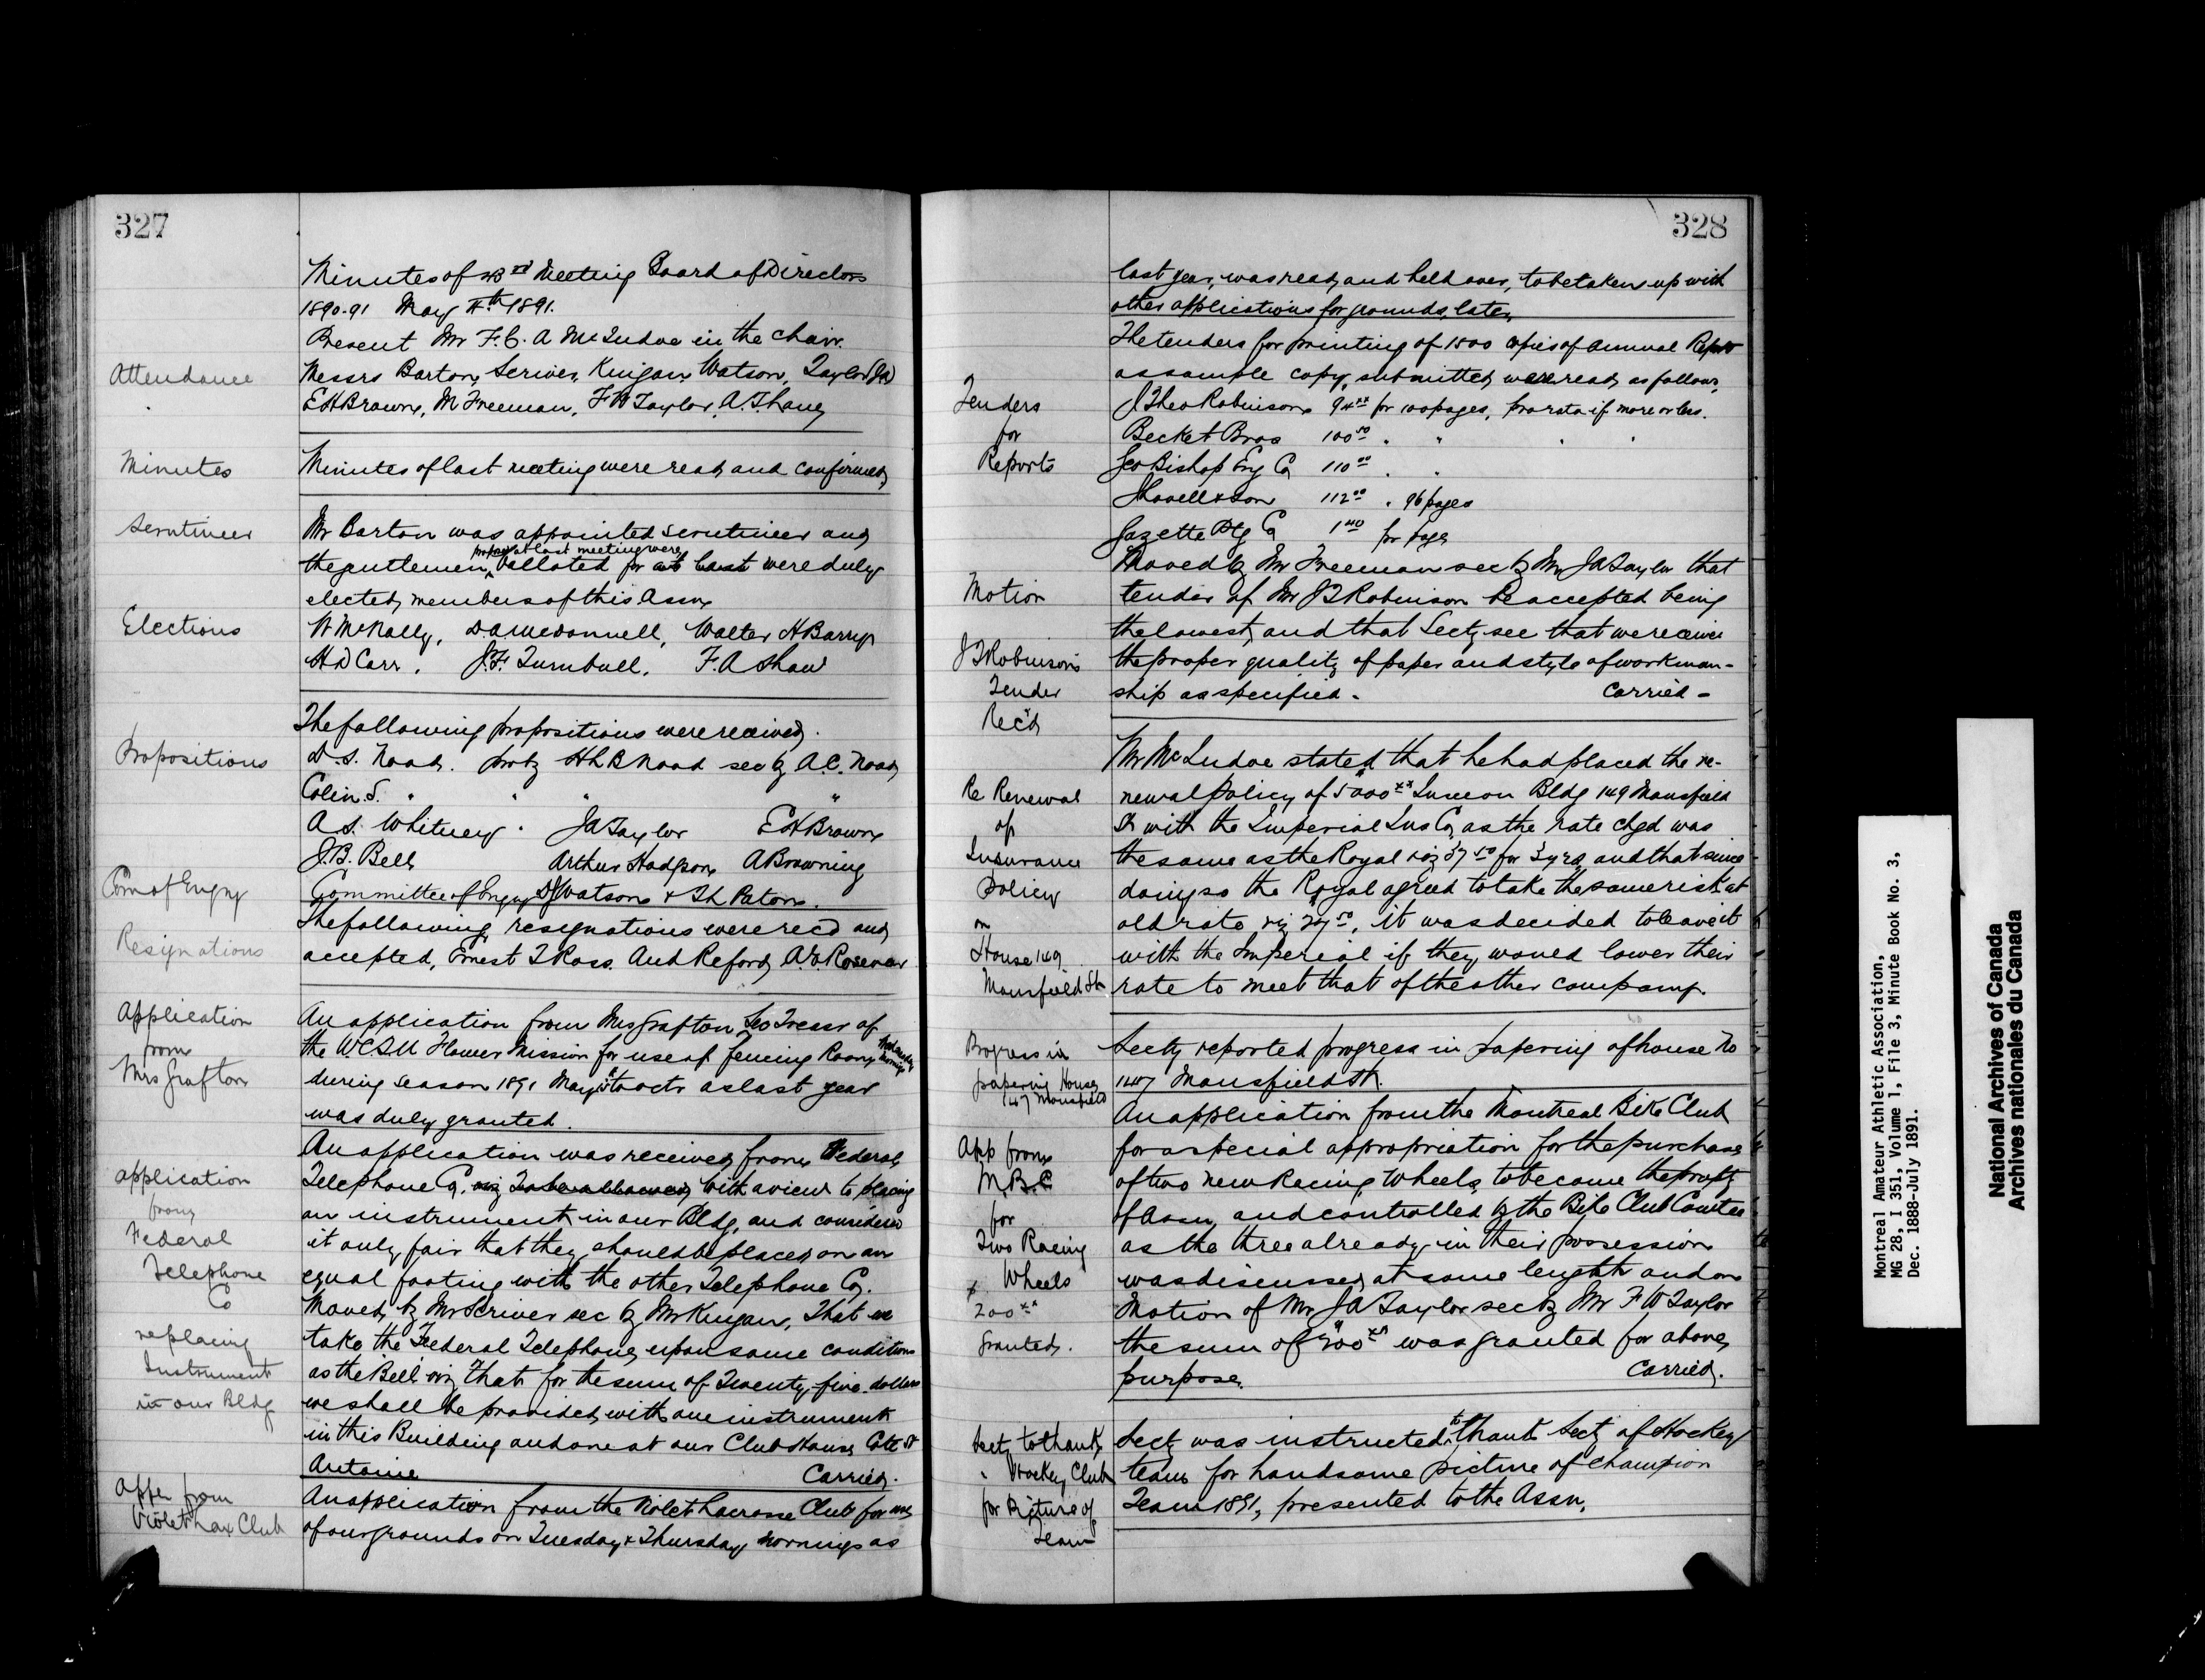 327
Minutes of 43rd Meeting Board of Directors
1890-91 May 4th 1891.
Present Mr F.C. A McIndoe in the Chair.
Attendance
Messrs Barton, Scriver, Kingan, Watson, Taylor (JA)
EH Brown, M Freeman, F W Taylor, A.T. Lane
Minutes
Minutes of last meeting were read and confirmed
Scrutineer
Mr Barton was appointed scrutineer and
the gentlemen proposed at last meeting were balloted for at last were duly
elected members of this Assn
Elections
W McNally, D.A. McDonnell, Walter H Barry
H D Carr, J.F. Turnbull, F. A Shaw
The following propositions were received.
Propositions
D.S. Noad. prop by H L B Noad sec by A.C. Noad
Colin.S. " " " "
A S. Whitney. JA Taylor EH Brown
J.B. Bell Arthur Hodgson A Browning
Com of Enqry
Committee of Enqry DJ Watson & Th Paton.
Resignations
The following resignations were rec'd and
accepted, Ernest T Ross. And Reford, A.
Application
from
Mrs Grafton
An application from Mrs Grafton Sec Treasr of
the WCTU Flower Mission for use of Fencing Room
during season 1891 May to Octr as last year
was duly granted.
Application
from
Federal
Telephone
Co
re placing
Instrument
in our Bldg
An application was received from Federal
Telephone Co. viz To be allowed With a view to placing
an instrument in our Bldg, and considered
it only fair that they should be placed on an
equal footing with the other Telephone Co.
Moved by Mr Scriver sec by Mr Kingan, That we
take the Federal Telephone upon same conditions
as the Bell viz That for the sum of Twenty-five dollars
we shall be provided with one instrument
in this Building and one at our Club House Cote St
Antoine Carried.
Appn from
Violet Lax Club
An application from the Violet Lacrosse Club for use
of our grounds on Tuesday & Thursday mornings as
328
last year, was read and held over, to be taken up with
other applications for grounds, later.
Tenders
for
Reports
The tenders for printing of 1500 copies of Annual Report
as sample copy, submitted were read as follows,
J Theo Robinson 94xx for 100 pages, pro rata if more or less.
Becket Bros 100 50 " " " "
Geo Bishop Eng Co 110 00 " "
J Lovell & Son 112 00 " 96 pages
Gazette Ptg Co 1 40 per page
Motion
J T Robinson's
Tender
Rec'd
Moved by Mr Freeman sec by Mr JA Taylor that
tender of Mr J T Robinson be accepted being
the lowest, and that Secty see that we receive
the proper quality of paper and style of workman-
ship as specified - Carried -
Re Renewal
of
Insurance
Policy
on
House 149
Mansfield St
Mr McIndoe stated that he had placed the re-
newal policy of $5000xx Insce on Bldg 149 Mansfield
St with the Imperial Ins Co, as the rate chgd was
the same as the Royal viz 37 50 for 3 yrs, and that since
doing so the Royal agreed to take the same risk at
old rate viz 27 50, it was decided to leave it
with the Imperial if they would lower their
rate to meet that of the other company.
Progress in
papering House
147 Mansfield
Secty reported progress in papering of house No
147 Mansfield St.
App from
M.B.C
for
Two Racing
Wheels
$
200xx
Granted.
An application from the Montreal Bike Club
for a special appropriation for the purchase
of two new Racing Wheels, to become the propty
of Assn, and controlled by the Bike Club Comtee
as the three already in their possession
was discussed at some length and on
Motion of Mr JA Taylor sec by Mr F W Taylor
the sum of $200xx was granted for above
purpose. Carried.
Secty to thank
" Hockey Club
for Picture of
Team
Secty was instructed to thank Secty of Hockey
team for handsome picture of Champion
Team 1891, presented to the Assn.
Montreal Amateur Athletic Association,
MG 28, I 351, Volume 1, File 3, Minute Book No. 3,
Dec. 1888-July 1891.
National Archives of Canada
Archives nationales du Canada